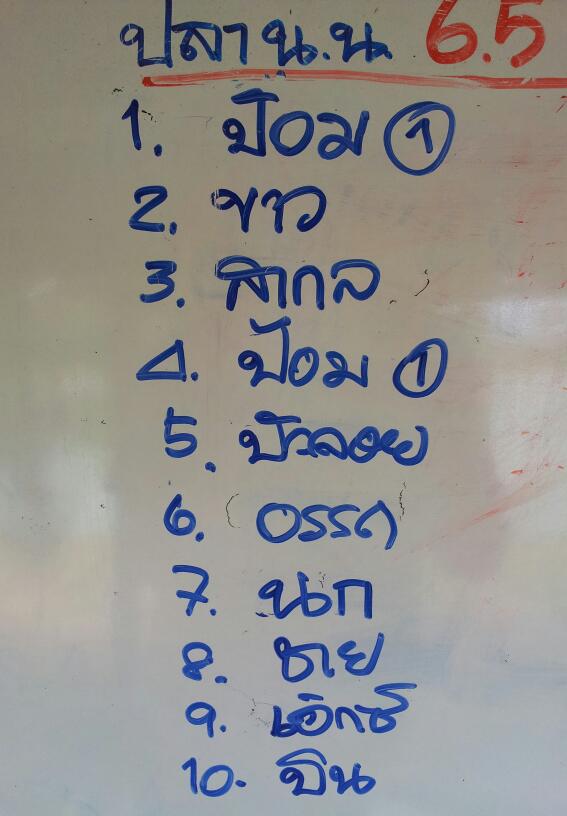 ปลา น.น. 6.5
1. ป้อม ①
2. ขาว
3. สากล
4. ป้อม ①
5. บัวลอย
6. อรรถ
7. นก
8. ชาย
9. เอ๊กซ์
10. บิน